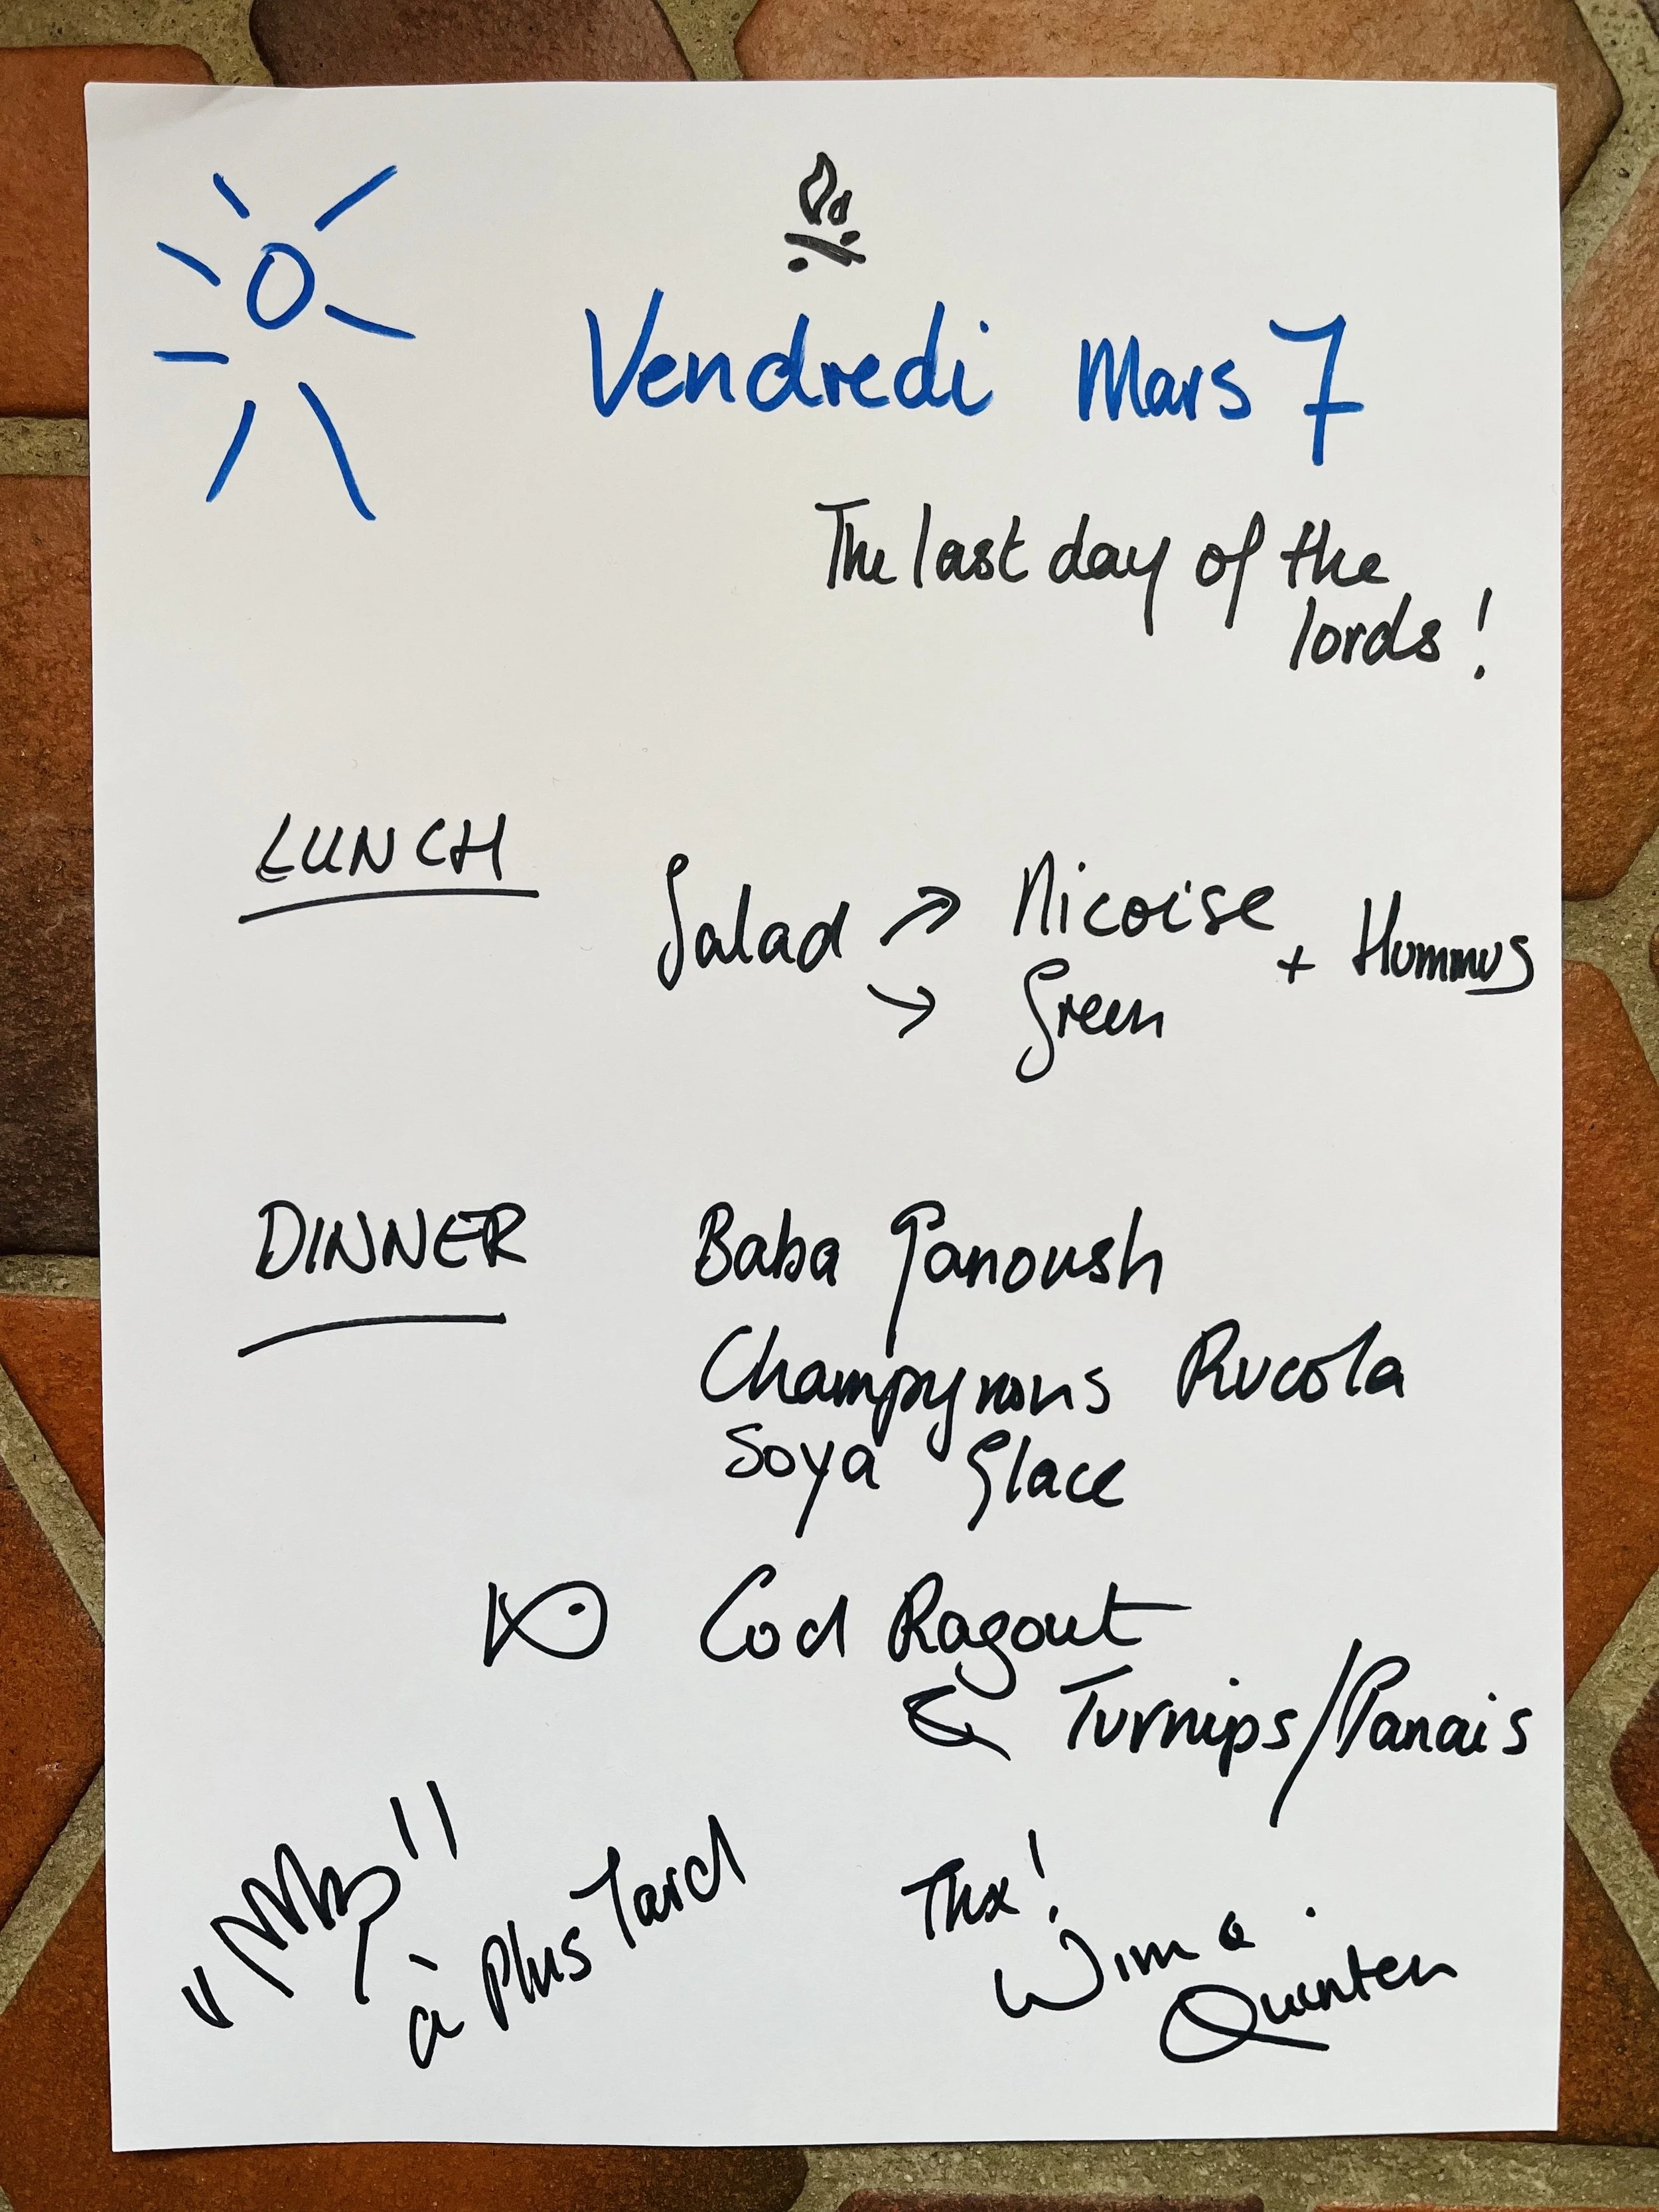 Vendredi Mars 7
The last day of the
lords!
LUNCH
Salad → Nicoise + Hummus
→ Green
DINNER
Baba Ganoush
Champynons Rucola
Soya Glace
Cod Ragout
Turnips/Panais
à Plus Tard
Thx!
Wim &
Quinten